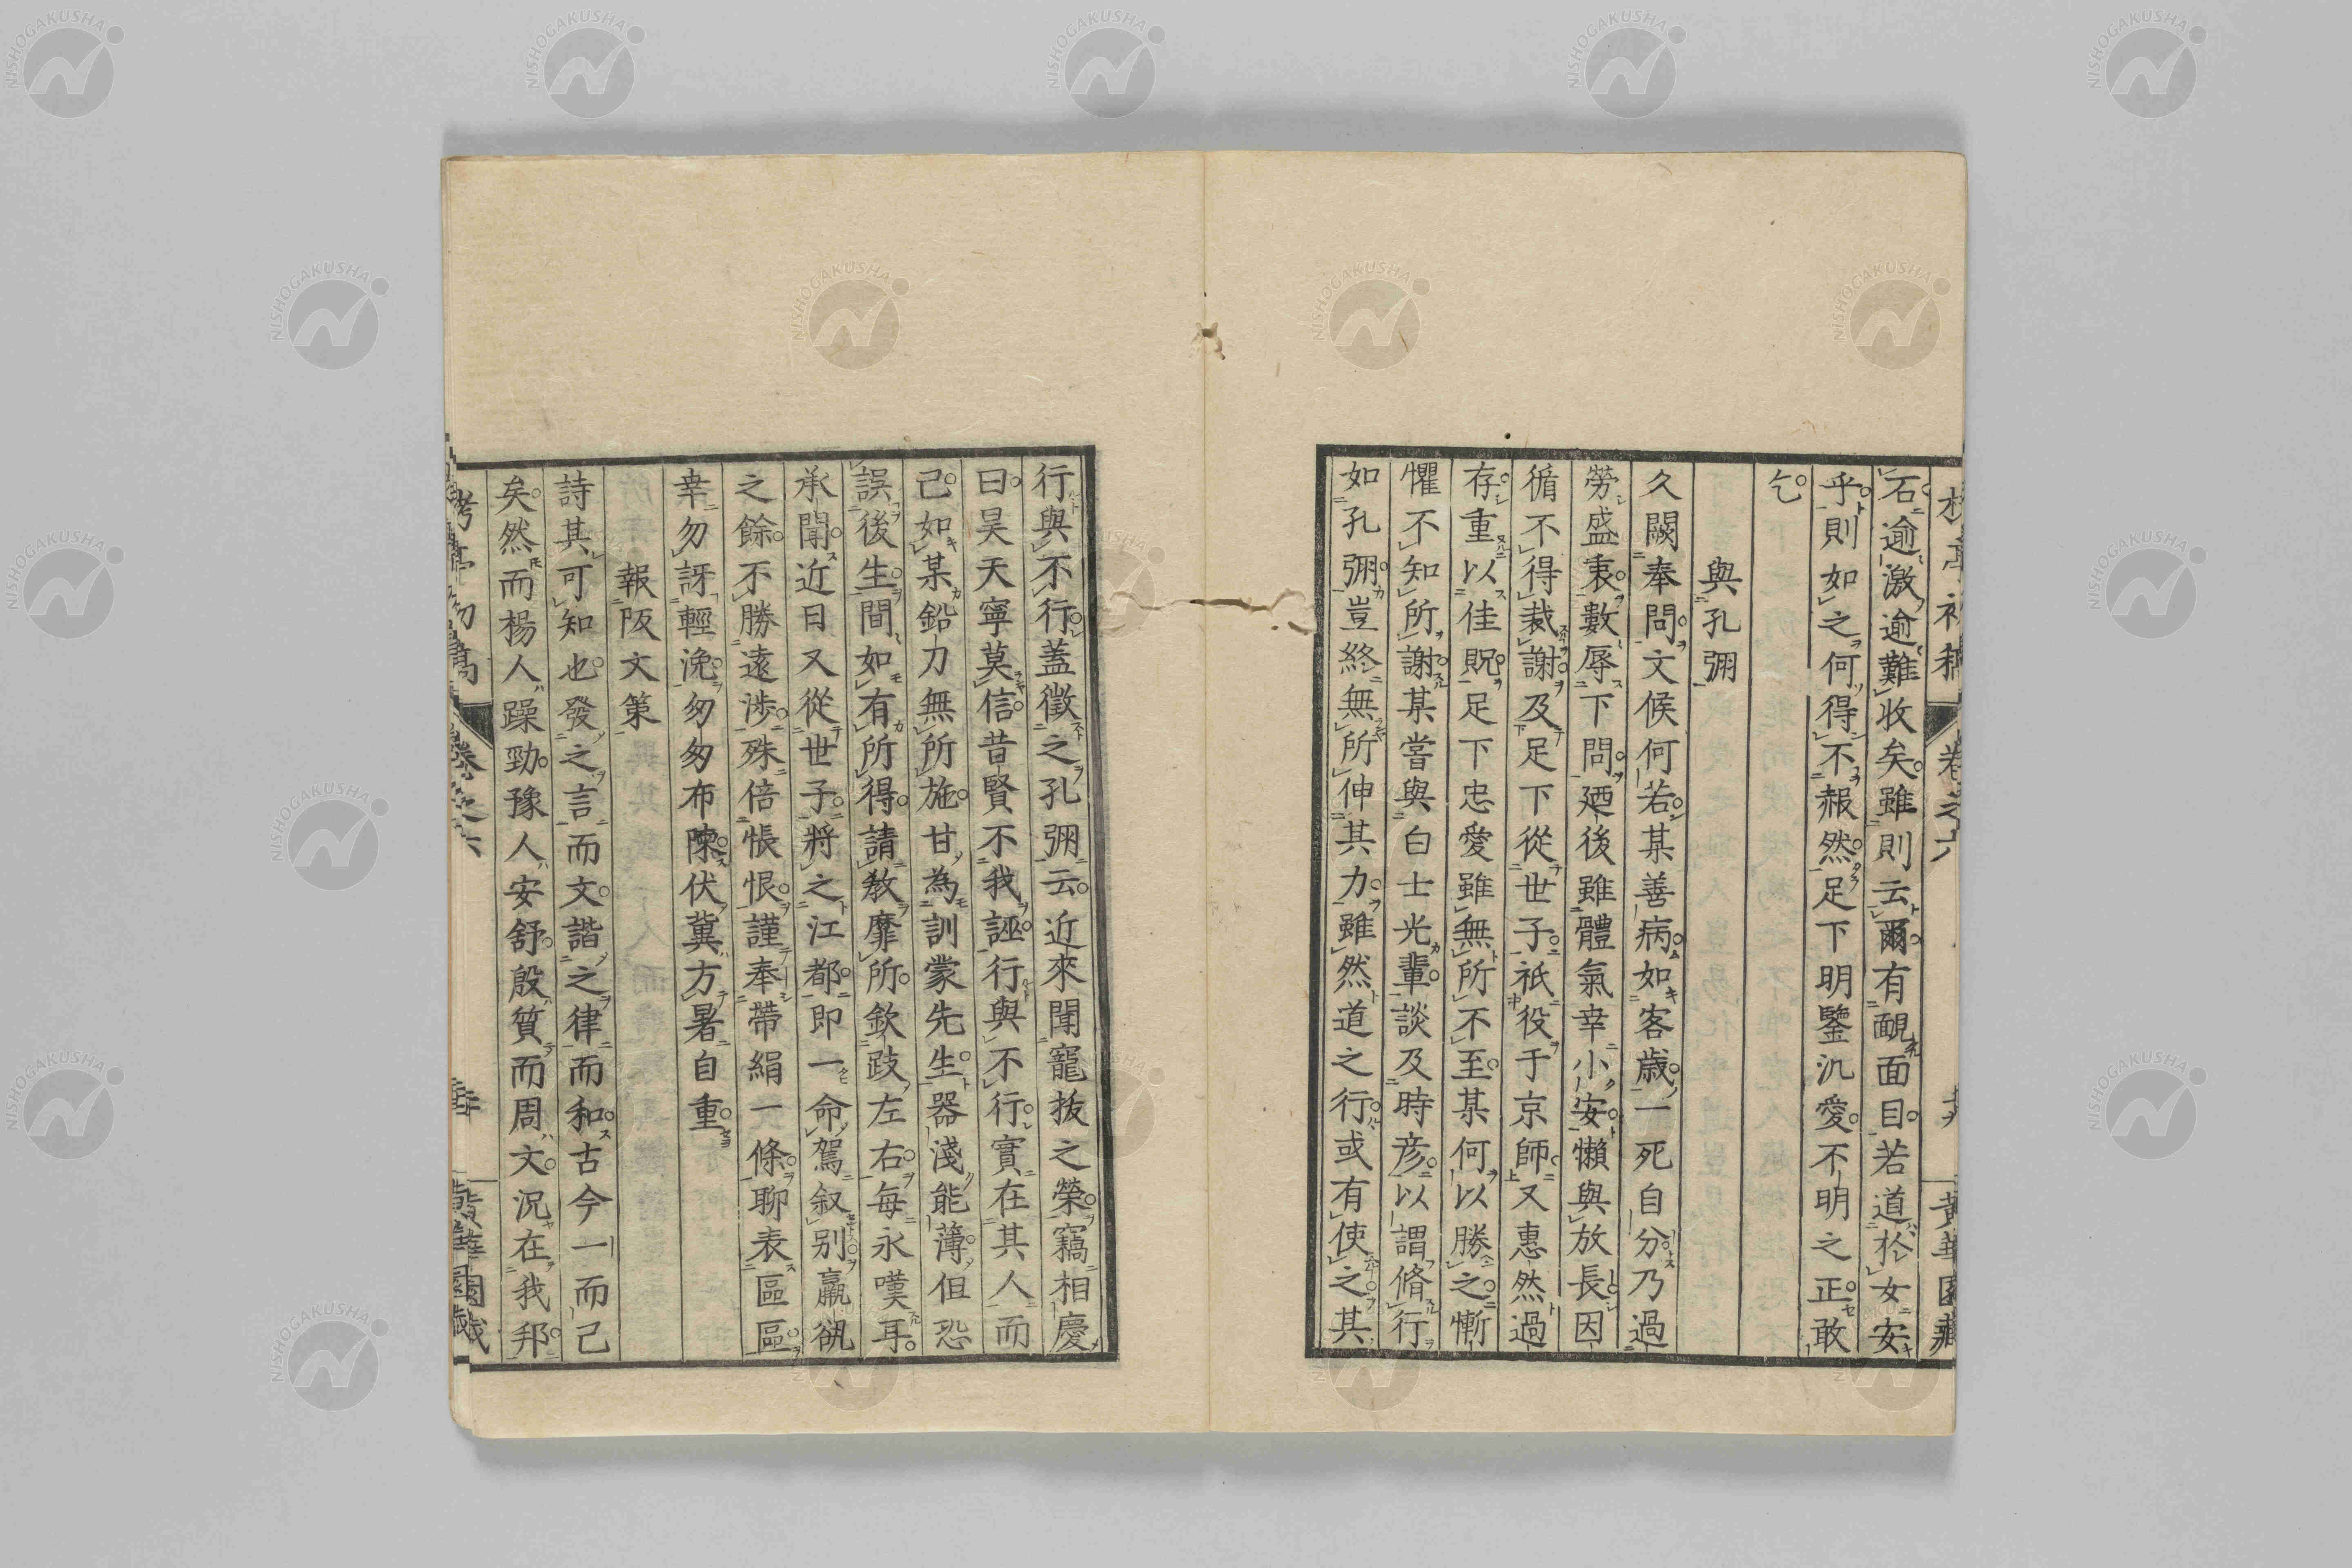 石逾激逾難收矣雖則云爾有靦面目若道於女安
乎則如之何得不赧然足下明鑒汎愛不明之正敢
乞
與孔彌
久闕奉問文候何若某善病如客歳一死自分乃過
勞盛衷數辱下問廼後雖體氣幸小安懶與放長因
循不得裁謝及足下從世子祇役于京師又惠然過
存重以佳貺足下忠愛雖無所不至某何以勝之慚
懼不知所謝某嘗與白士光輩談及時彦以謂脩行
如孔彌豈終無所伸其力雖然道之行或有使之其
行與不行蓋徵之孔彌云近來聞寵抜之榮竊相慶
曰昊天寧莫信昔賢不我誣行與不行實在其人而
己如某鉛刀無所施甘為訓蒙先生器淺能薄但恐
誤後生間如有所得請教靡所欽跂左右毎永嘆耳
承聞近日又從世子將之江都即一命駕叙别羸
之餘不勝遠渉殊倍悵恨謹奉帶絹一條聊表區區
幸勿訝輕浼匆匆布陳伏冀方暑自重
報阪文第
詩其可知也發之言而文諧之律而和古今一而己
矣然而楊人躁勁豫人安舒殷質而周文況在我邦
卷之六
黄華園藏